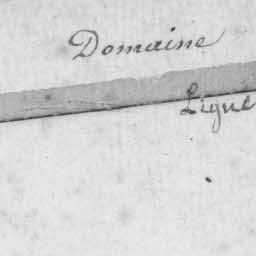 Domaine
Ligne